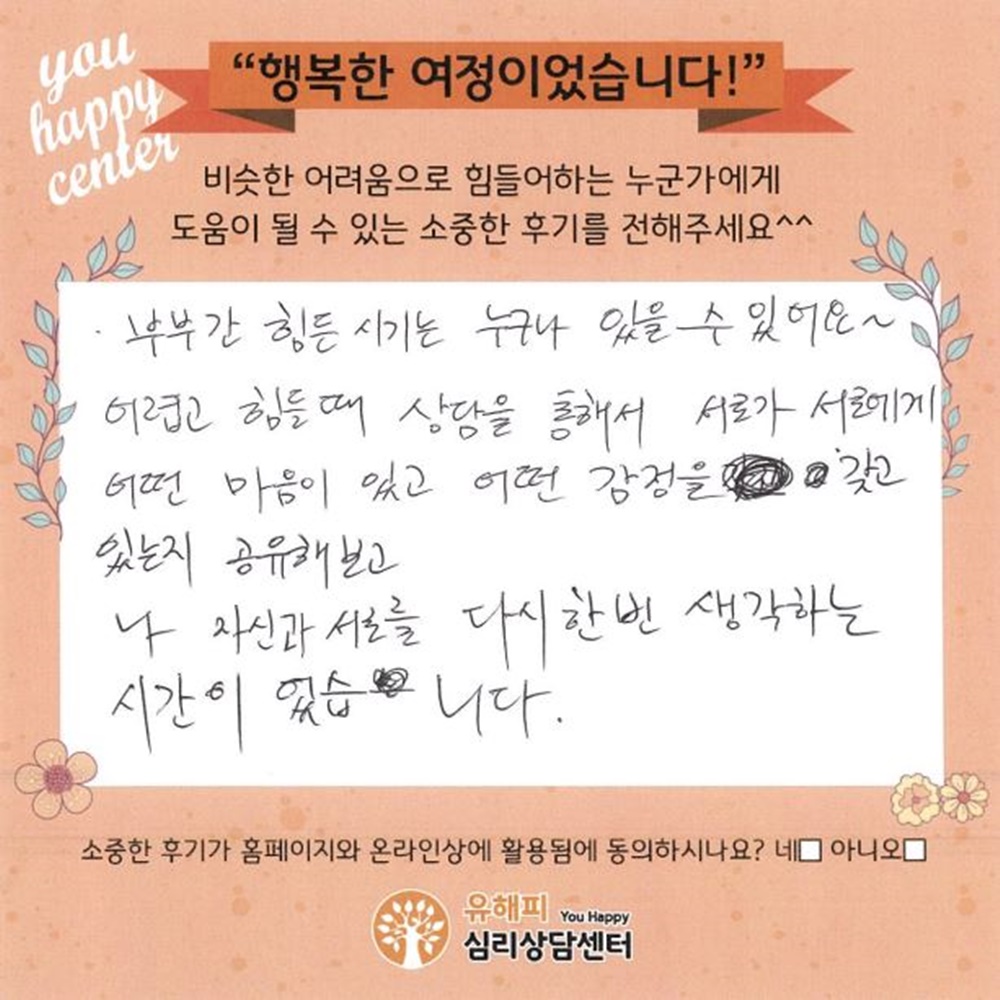 you
happy
center
“행복한 여정이었습니다!”
비슷한 어려움으로 힘들어하는 누군가에게
도움이 될 수 있는 소중한 후기를 전해주세요^^
· 부부간 힘든 시기는 누구나 있을 수 있어요~
어렵고 힘들때 상담을 통해서 서로가 서로에게
어떤 마음이 있고 어떤 감정을 갖고
있는지 공유해보고
나 자신과 서로를 다시한번 생각하는
시간이 었습니다.
소중한 후기가 홈페이지와 온라인상에 활용됨에 동의하시나요? 네□ 아니오□
유해피 You Happy
심리상담센터